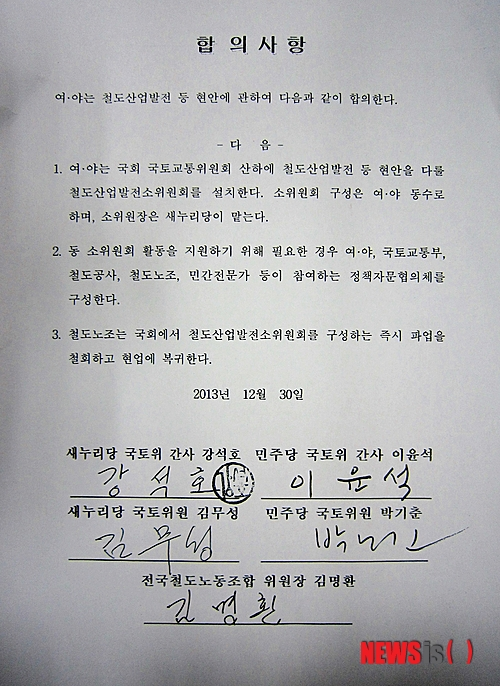 합 의 사 항
여·야는 철도산업발전 등 현안에 관하여 다음과 같이 합의한다.
- 다 음 -
1. 여·야는 국회 국토교통위원회 산하에 철도산업발전 등 현안을 다룰
철도산업발전소위원회를 설치한다. 소위원회 구성은 여·야 동수로
하며, 소위원장은 새누리당이 맡는다.
2. 동 소위원회 활동을 지원하기 위해 필요한 경우 여·야, 국토교통부,
철도공사, 철도노조, 민간전문가 등이 참여하는 정책자문협의체를
구성한다.
3. 철도노조는 국회에서 철도산업발전소위원회를 구성하는 즉시 파업을
철회하고 현업에 복귀한다.
2013년 12월 30일
새누리당 국토위 간사 강석호 민주당 국토위 간사 이윤석
강 석 호 이 윤 석
새누리당 국토위원 김무성 민주당 국토위원 박기춘
김 무 성
전국철도노동조합 위원장 김명환
김 명 환
NEWSis( )